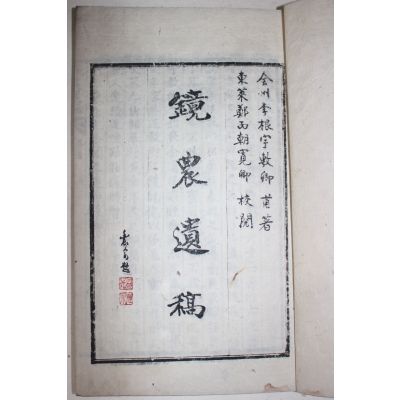 全州李根宇敎卿 著
東萊鄭丙朝寬卿 校閱
鏡農遺稿